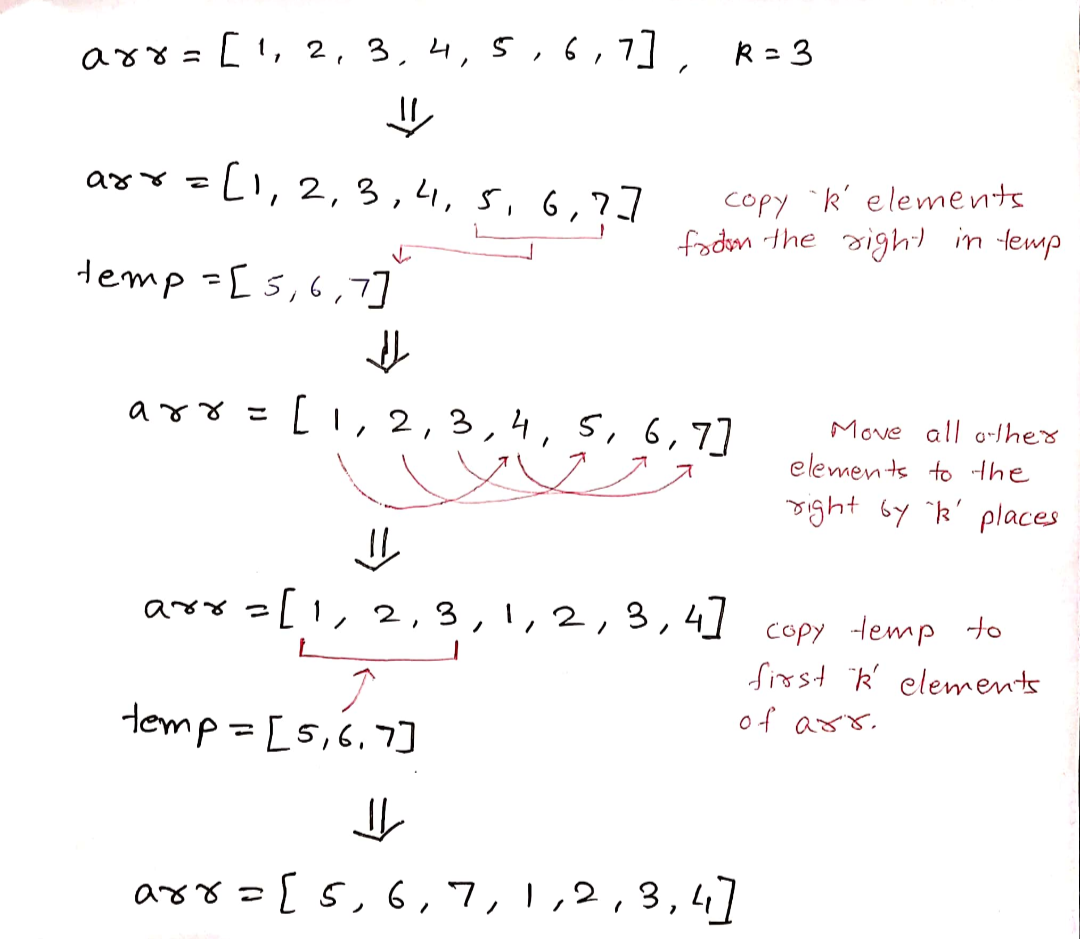 arr = [ 1, 2, 3, 4, 5, 6, 7 ], k = 3
⇓
arr = [1, 2, 3, 4, 5, 6, 7]
copy 'k' elements
from the right in temp
temp = [ 5, 6, 7]
⇓
arr = [ 1, 2, 3, 4, 5, 6, 7]
Move all other
elements to the
right by 'k' places
⇓
arr = [ 1, 2, 3, 1, 2, 3, 4]
copy temp to
first 'k' elements
of arr.
temp = [ 5, 6, 7]
⇓
arr = [ 5, 6, 7, 1, 2, 3, 4]